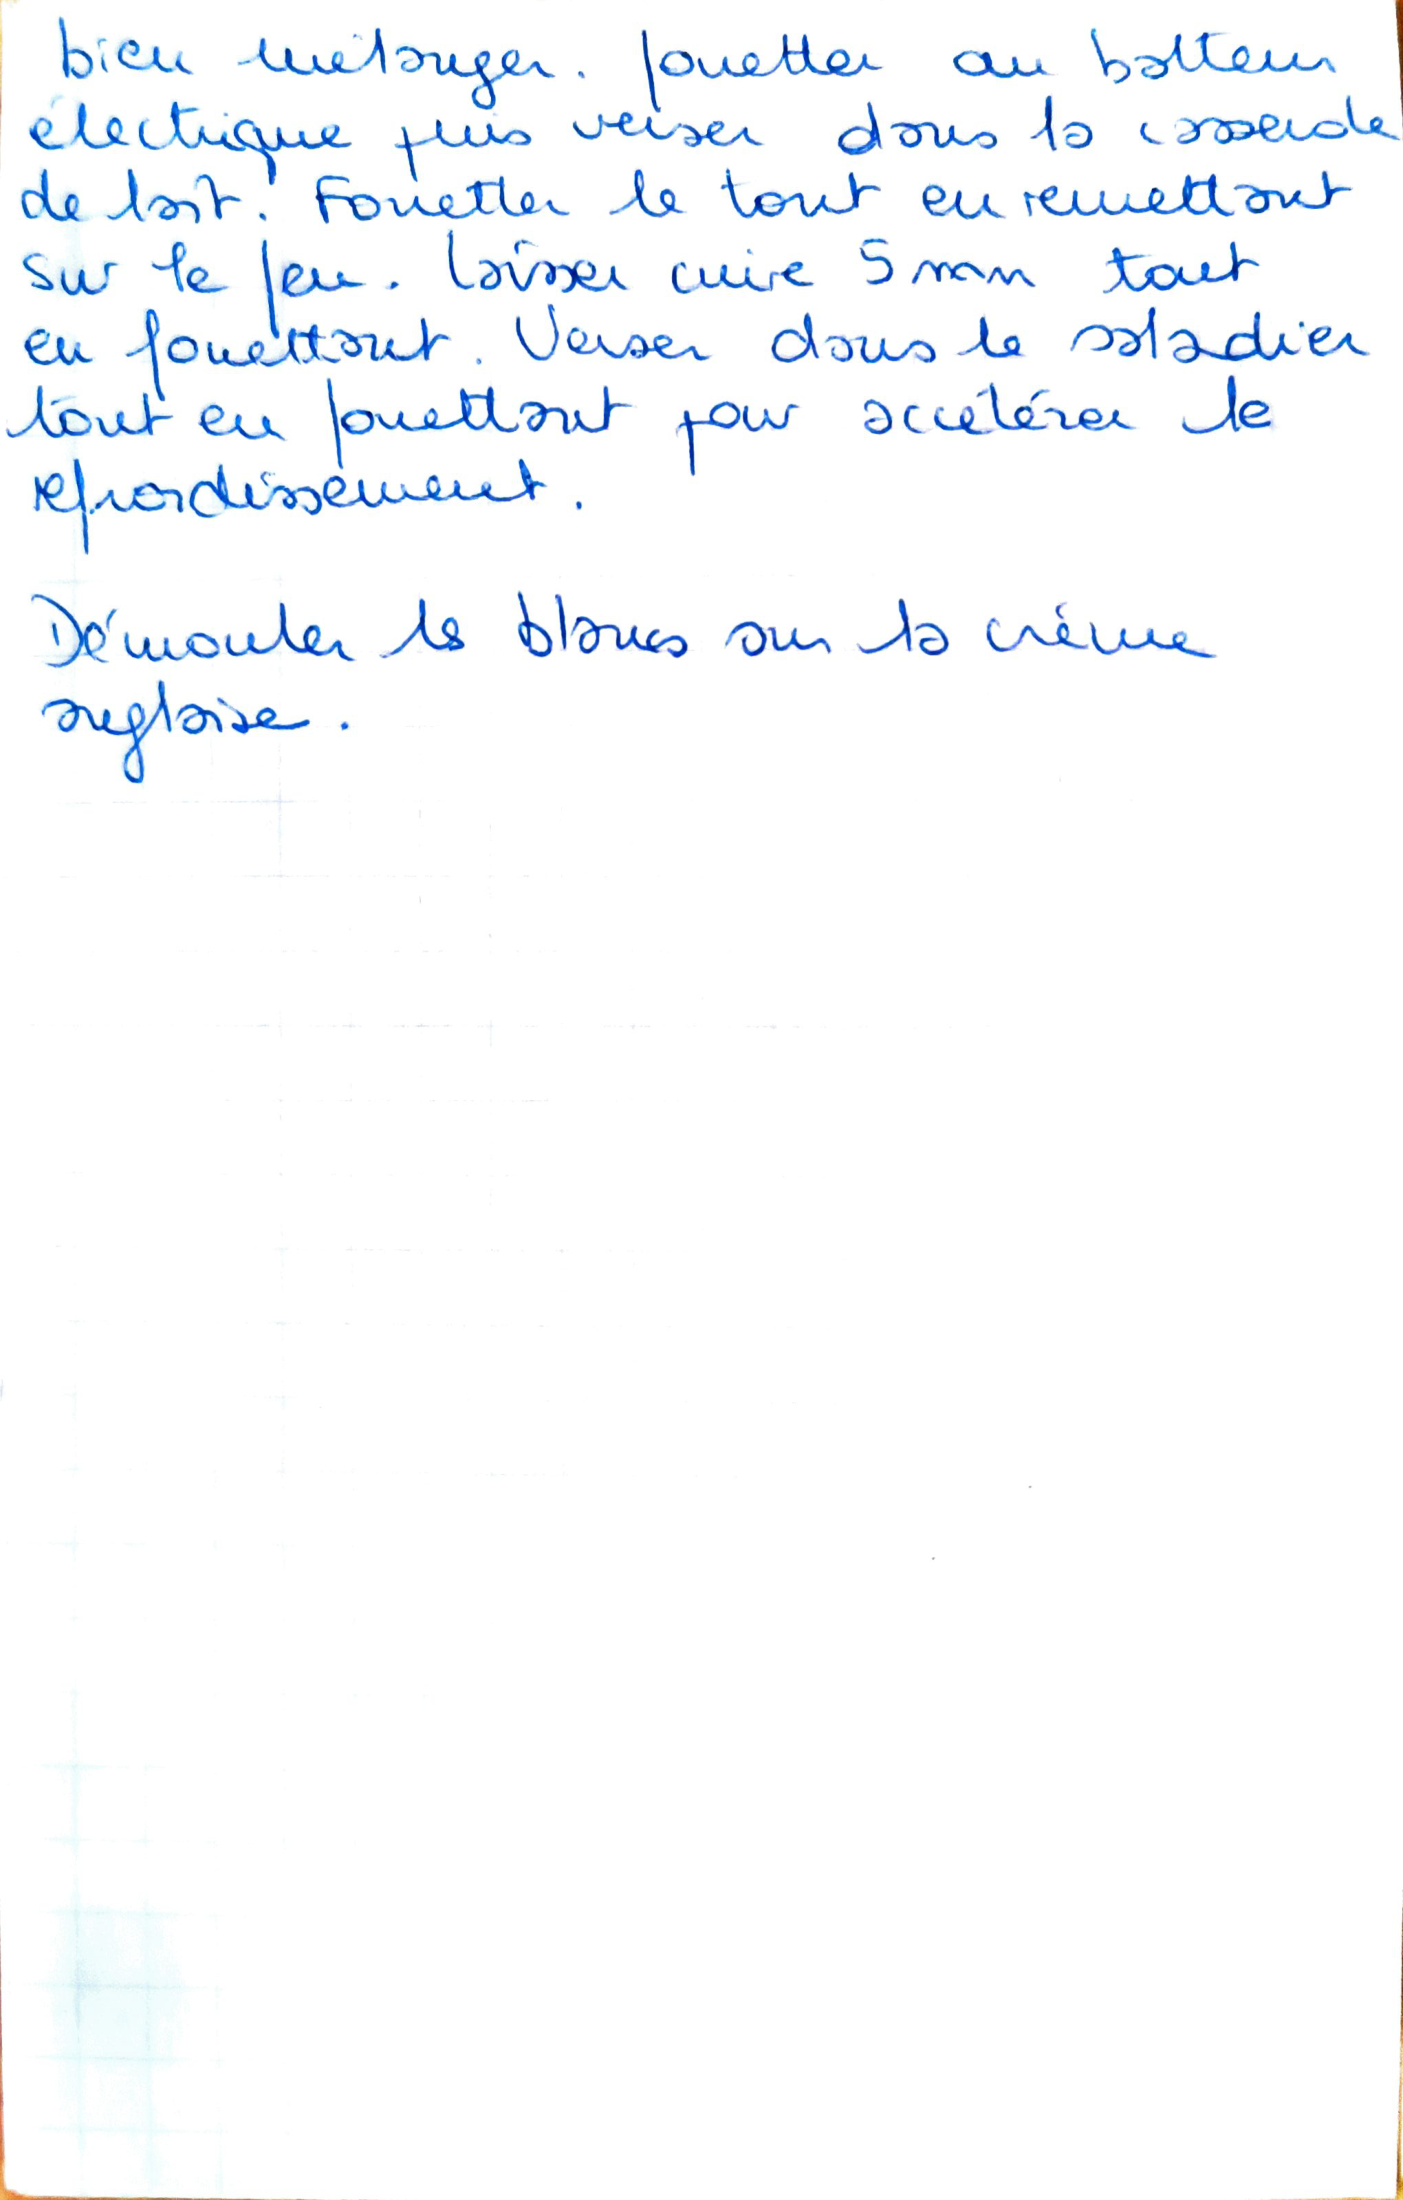 bien mélanger. fouetter au batteur
électrique puis verser dans la casserole
de lait. Fouetter le tout en remettant
sur le feu. laisser cuire 5 mn tout
en fouettant. Verser dans le saladier
tout en fouettant pour accélérer le
refroidissement.
Démouler les blancs sur la crème
anglaise.